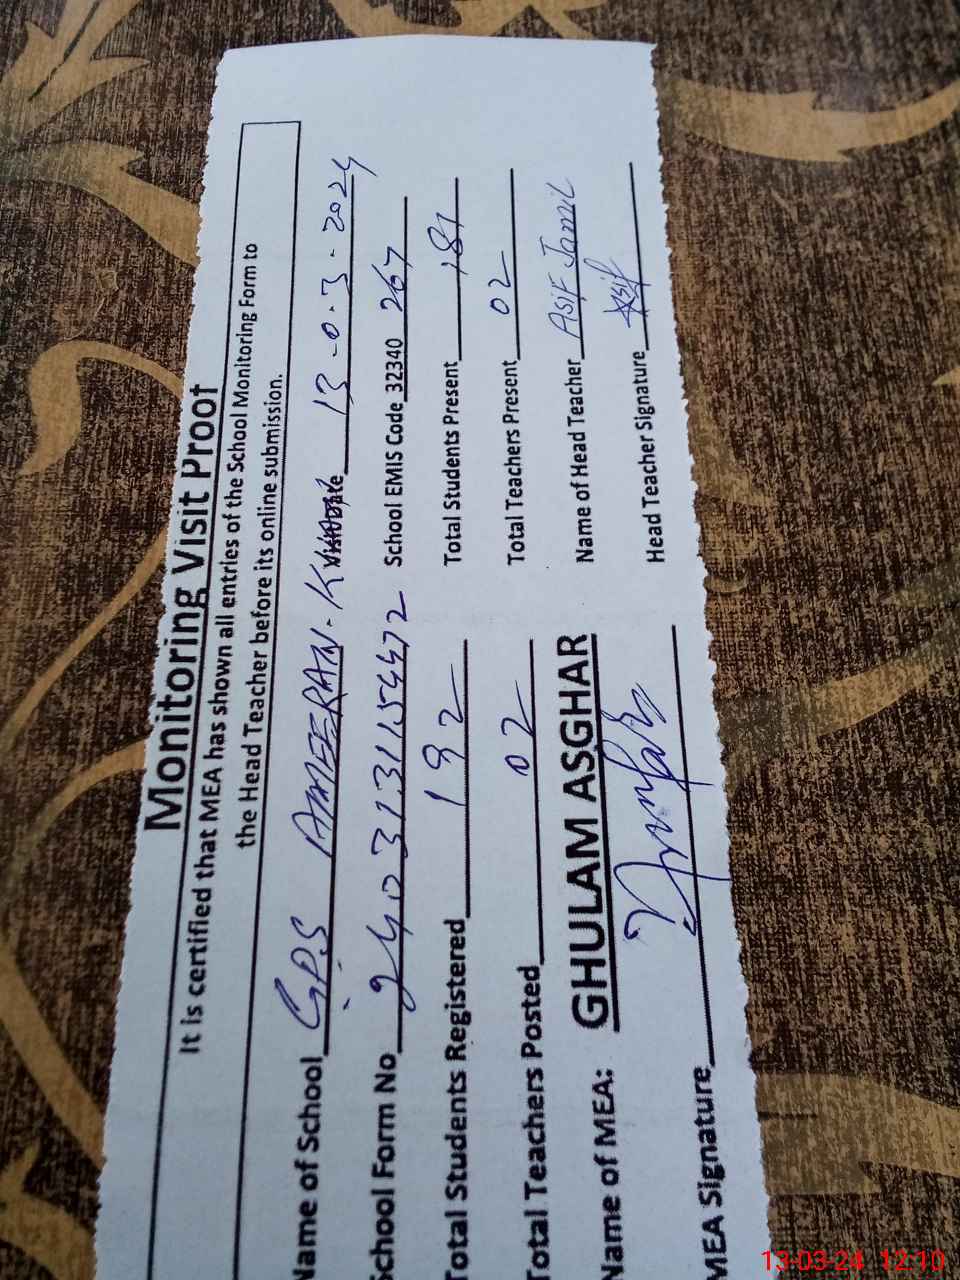 Monitoring Visit Proof
It is certified that MEA has shown all entries of the School Monitoring Form to
the Head Teacher before its online submission.
Name of School G.P.S AMEERAN- Visit Date 13-0-3-2024
School Form No School EMIS Code 32340 267
Total Students Registered 192 Total Students Present 187
Total Teachers Posted 02 Total Teachers Present 02
Name of MEA: GHULAM ASGHAR Name of Head Teacher Asif Jamil
MEA Signature Head Teacher Signature Asif
13-03-24 12:10